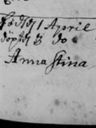 Född 1 April
döpt d 3 do
Anna Stina